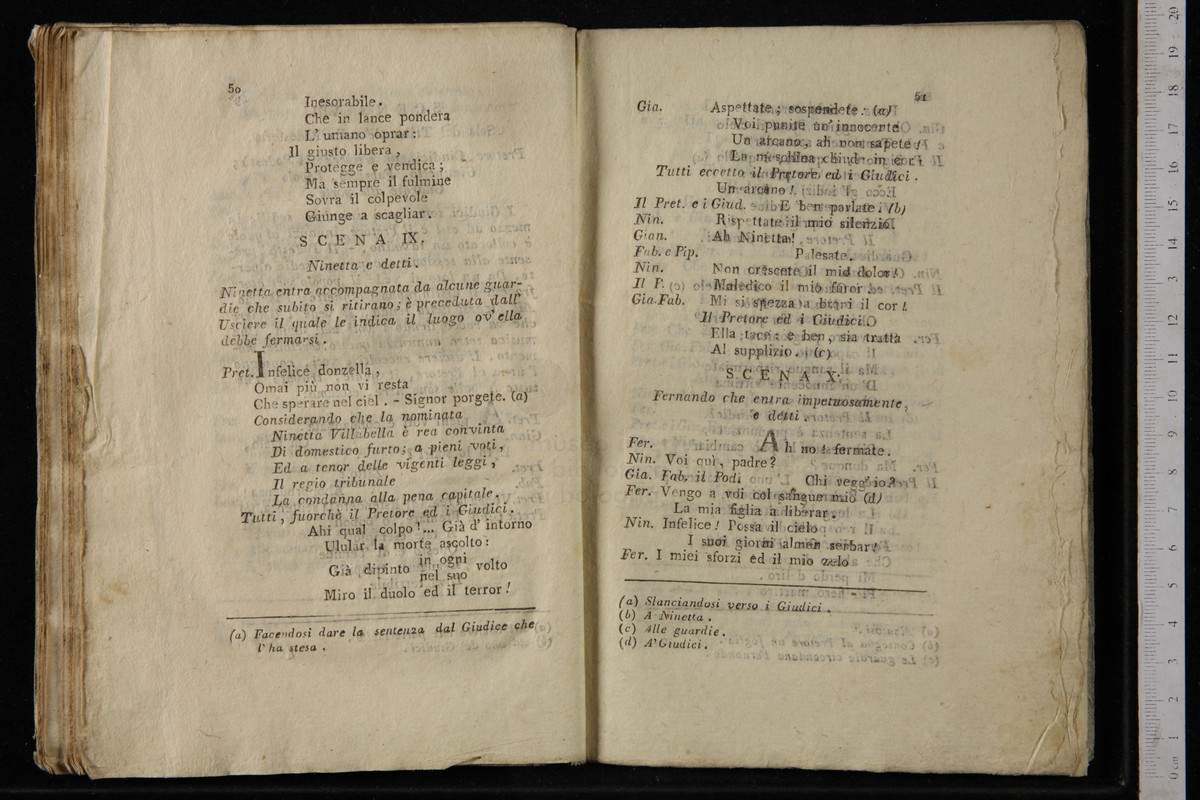 50
Inesorabile.
Che in lance pondera
L' umano oprar:
Il giusto libera,
Protegge e vendica;
Ma sempre il fulmine
Sovra il colpevole
Giunge a scagliar.
SCENA IX.
Ninetta e detti.
Ninetta entra accompagnata da alcune guar-
die che subito si ritirano; è preceduta dall'
Usciere il quale le indica il luogo ov' ella
debbe fermarsi.
Pret. Infelice donzella,
Omai più non vi resta
Che sperare nel ciel. - Signor porgete. (a)
Considerando che la nominata
Ninetta Villabella è rea convinta
Di domestico furto; a pieni voti,
Ed a tenor delle vigenti leggi,
Il regio tribunale
La condanna alla pena capitale.
Tutti, fuorchè il Pretore ed i Giudici.
Ahi qual colpo!... Già d' intorno
Ulular la morte ascolto:
Già dipinto in ogni volto
nel suo
Miro il duolo ed il terror!
(a) Facendosi dare la sentenza dal Giudice che
l' ha stesa.
51
Gia. Aspettate; sospendete: (a)
Voi punite un' innocente
Un arcano, ah non sapete!
La meschina chiude in cor!
Tutti eccetto il Pretore ed i Giudici.
Un arcano!
Il Pret. e i Giud. E ben parlate. (b)
Nin. Rispettate il mio silenzio.
Gian. Ah Ninetta!
Fab. e Pip. Palesate.
Nin. Non crescete il mio dolor!
Il P. (o) Maledico il mio furor.
Gia. Fab. Mi si spezza a brani il cor!
Il Pretore ed i Giudici.
Ella tace: e ben, sia tratta
Al supplizio. (c)
SCENA X.
Fernando che entra impetuosamente,
e detti.
Fer. Ah no! fermate.
Nin. Voi quì, padre?
Gia. Fab. il Pod. Chi vegg' io?
Fer. Vengo a voi col sangue mio (d)
La mia figlia a liberar.
Nin. Infelice! Possa il cielo
I suoi giorni almen serbar!
Fer. I miei sforzi ed il mio zelo
(a) Slanciandosi verso i Giudici.
(b) A Ninetta.
(c) Alle guardie.
(d) A' Giudici.